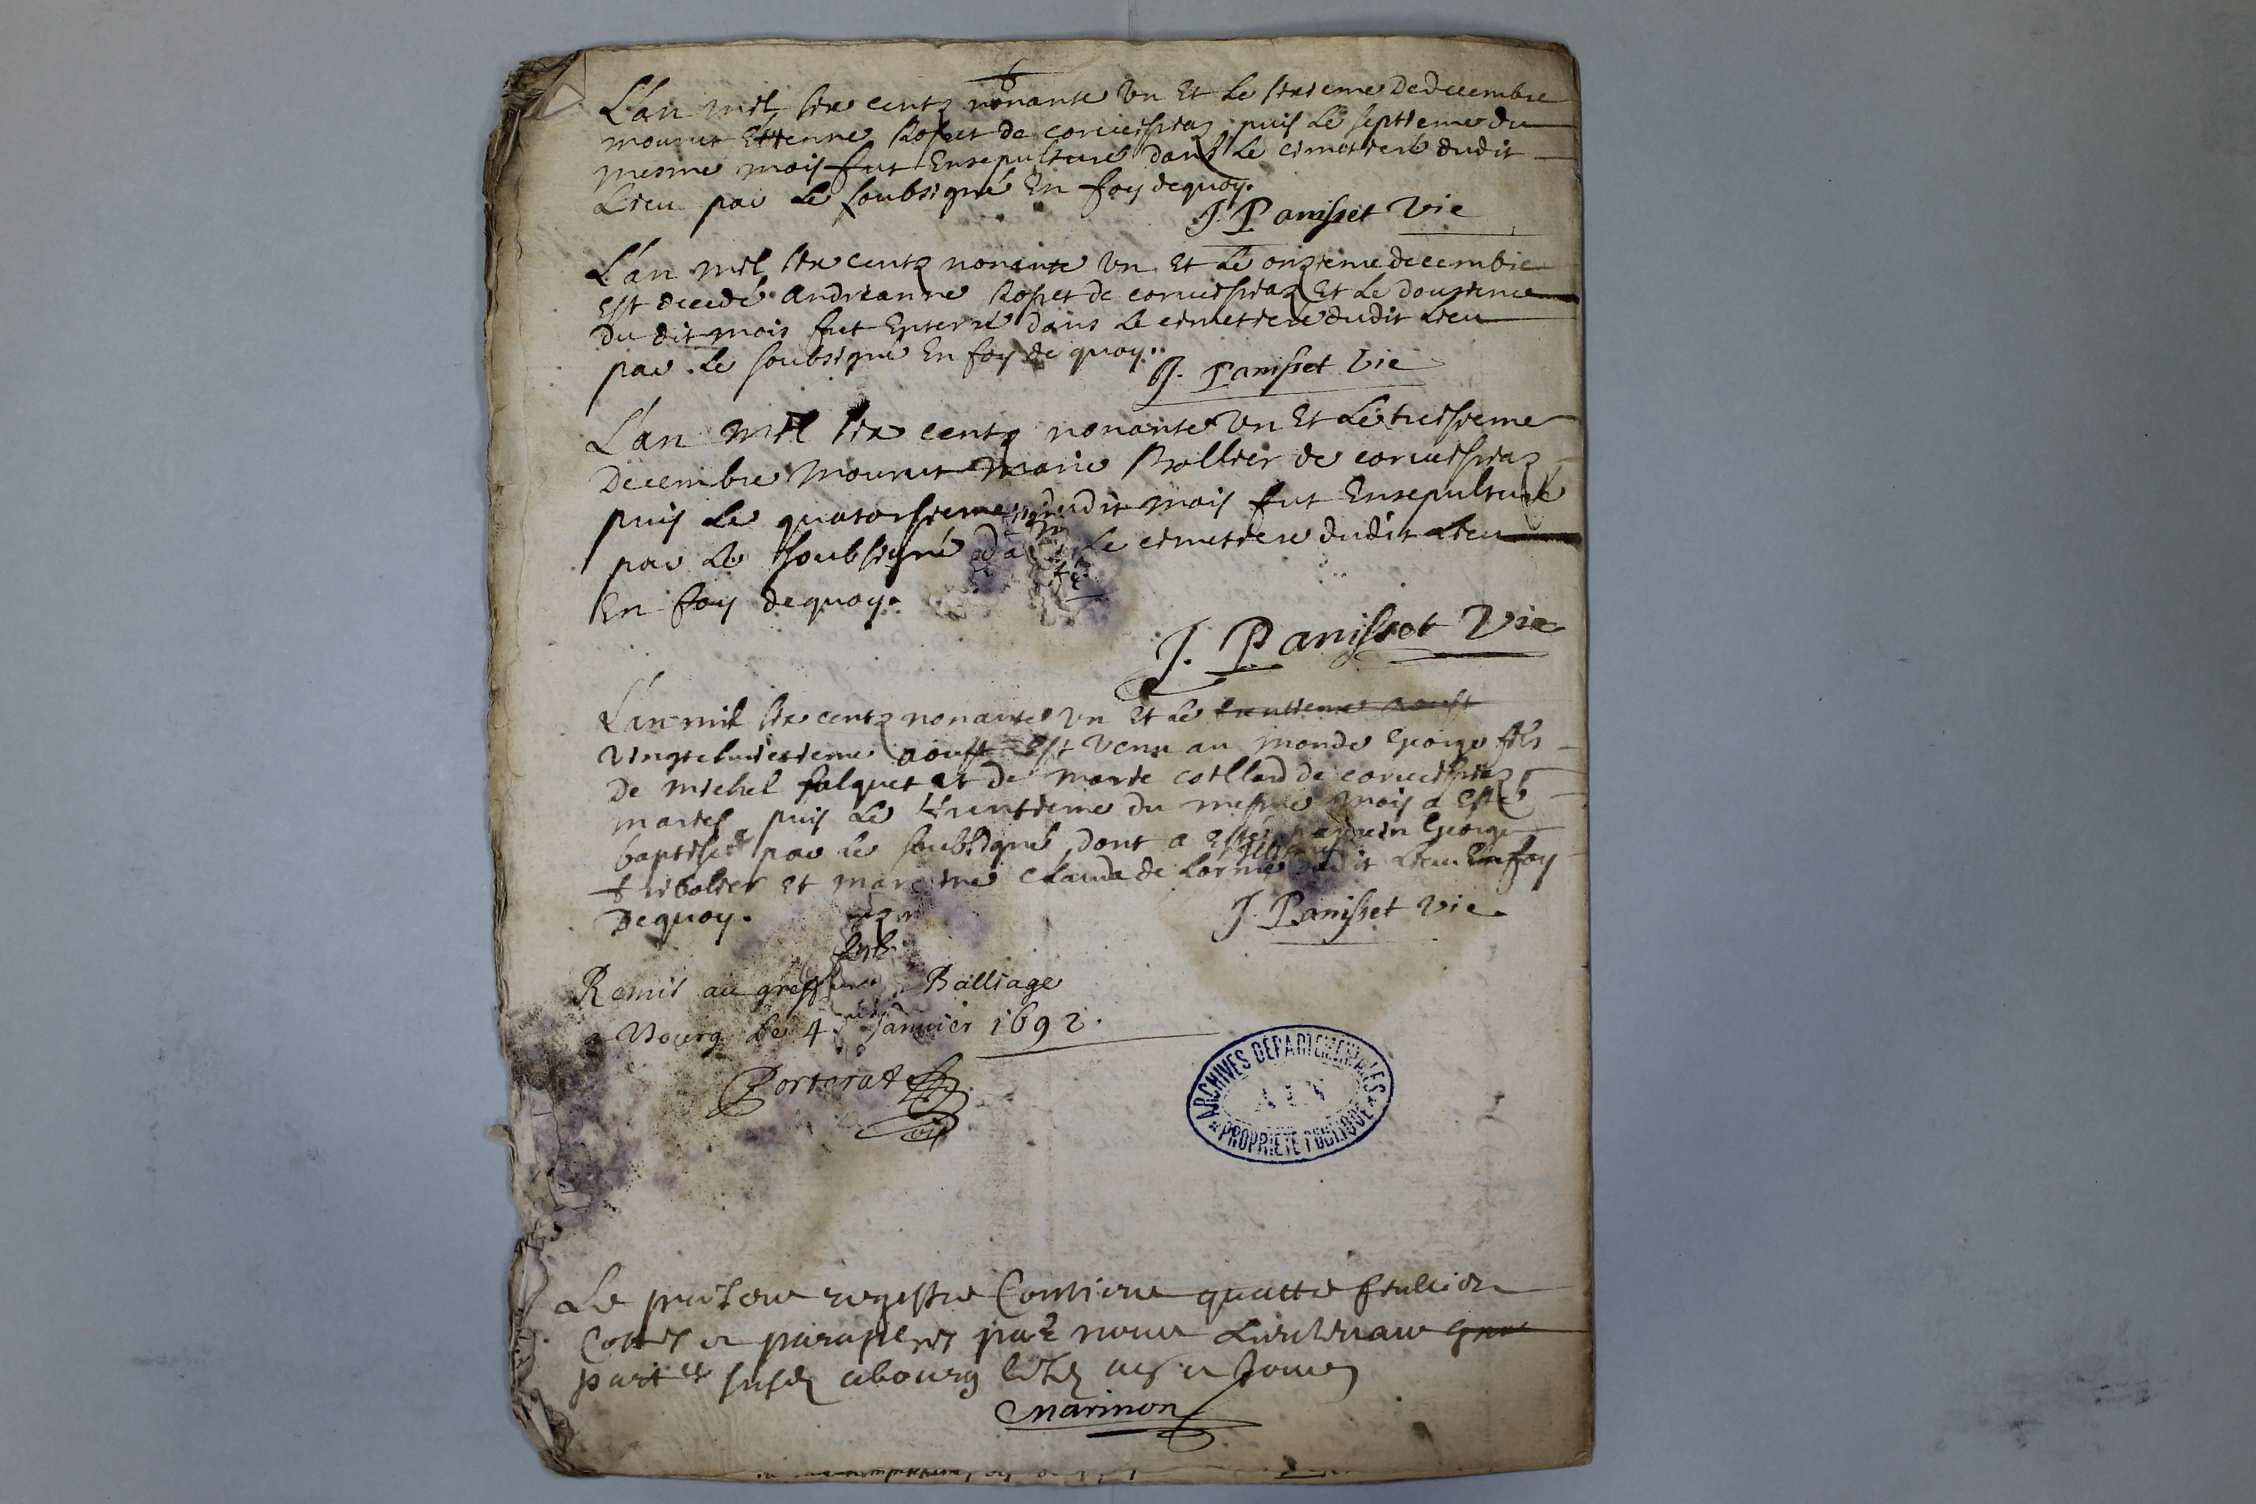 L'an mil six centz nonante un et le sixieme de decembre
mourut Etienne Rosset de corveissiaz puis le septieme du
mesme mois fut Ensepulturé dans le cimetiere dudit
Lieu par le soubsigné En foy dequoy.
J. Panisset Vic
L'an mil six centz nonante un et le onzieme decembre
est decedé andreanne Rosset de corveissiaz et le dousieme
du dit mois fut Enterré dans le cimetiere dudit Lieu
par le soubsigné En foy de quoy..
J. Panisset Vic
L'an mil six centz nonante un Et le treisieme
Decembre Mourut Marie Bollier de corveissiaz
puis le quatorsieme dudit mois fut Ensepulturé
par le soubsigné le cimetiere dudit Lieu
En foy dequoy.
J. Panisset Vic
L'an mil six centz nonante un et le trentieme aoust
vingtehuictieme aoust est venu au monde George fils
De michel falquet et de marie coillard de corveissiaz
mariés puis le trentieme du mesme mois a esté
baptisé par le soubsigné, dont a esté parrein George
tribolier et mareine Clauda de Lorme dudit Lieu En foy
Dequoy.
J. Panisset Vic.
Remis au greffe Balliage
a Bourg le 4 Janvier 1692.
Porterat
ARCHIVES DEPARTEMENTALES
AIN
PROPRIETE PUBLIQUE
Le present registre Contient quattre feullietz
Cottés et paraphés par nous Lieutenant
part er susd abourg les an et Jour
Marinon